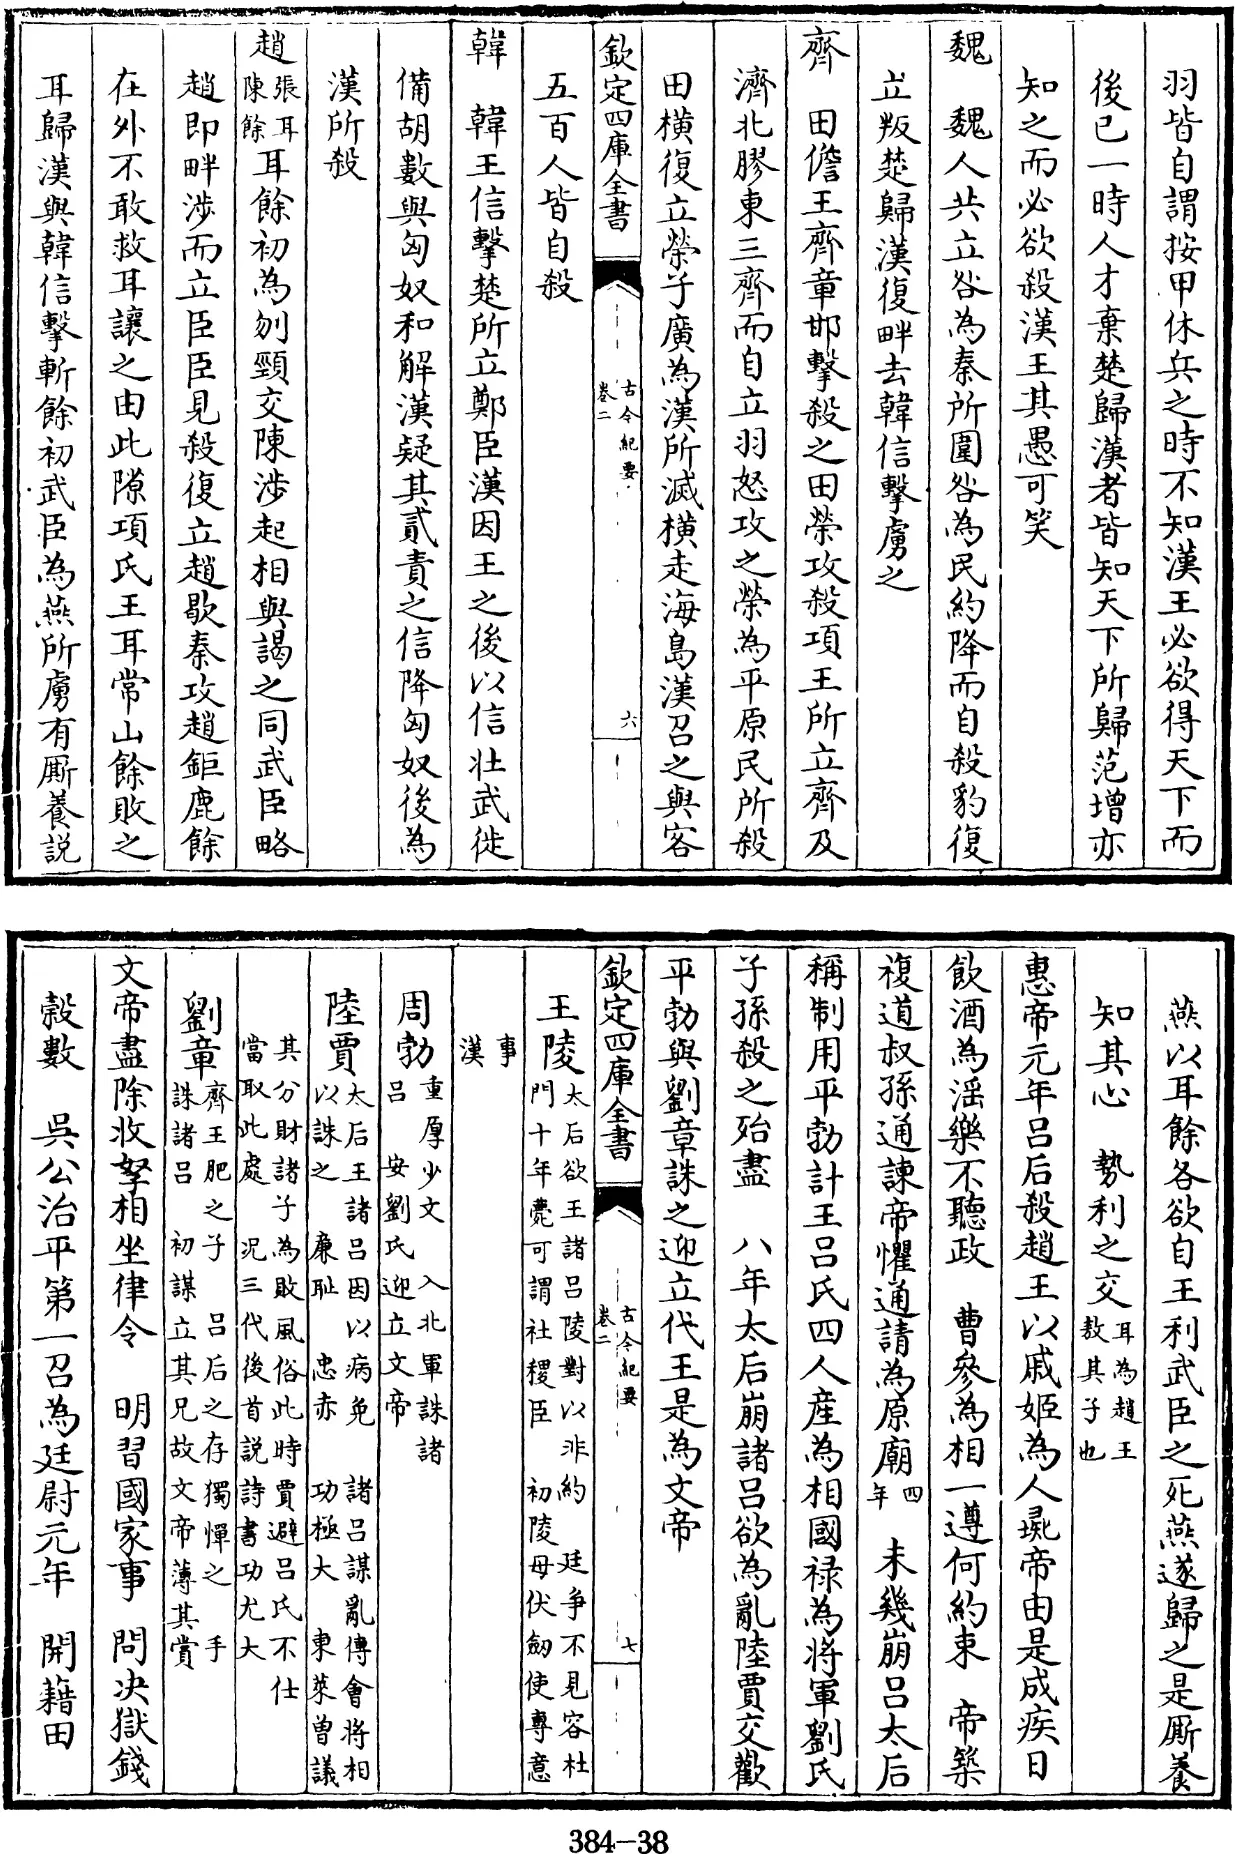 羽皆自謂按甲休兵之時不知漢王必欲得天下而
後已一時人才棄楚歸漢者皆知天下所歸范增亦
知之而必欲殺漢王其愚可笑
魏　魏人共立咎為秦所圍咎為民約降而自殺豹復
立叛楚歸漢復畔去韓信擊虜之
齊　田儋王齊章邯擊殺之田榮攻殺項王所立齊及
濟北膠東三齊而自立羽怒攻之榮為平原民所殺
田橫復立榮子廣為漢所滅橫走海島漢召之與客
欽定四庫全書　古今紀要　卷二　六
五百人皆自殺
韓　韓王信擊楚所立鄭臣漢因王之後以信壯武徙
備胡數與匈奴和解漢疑其貳責之信降匈奴後為
漢所殺
趙　張耳　陳餘　耳餘初為刎頸交陳涉起相與謁之同武臣略
趙即畔涉而立臣臣見殺復立趙歇秦攻趙鉅鹿餘
在外不敢救耳讓之由此隙項氏王耳常山餘敗之
耳歸漢與韓信擊斬餘初武臣為燕所虜有厮養說
燕以耳餘各欲自王利武臣之死燕遂歸之是厮養
知其心　勢利之交　耳為趙王　敖其子也
惠帝元年呂后殺趙王以戚姬為人彘帝由是成疾日
飲酒為淫樂不聽政　曹參為相一遵何約束　帝築
複道叔孫通諫帝懼通請為原廟　四年　未幾崩呂太后
稱制用平勃計王呂氏四人産為相國祿為將軍劉氏
子孫殺之殆盡　八年太后崩諸呂欲為亂陸賈交歡
平勃與劉章誅之迎立代王是為文帝
欽定四庫全書　古今紀要　卷二　七
王陵　太后欲王諸呂陵對以非約　廷爭不見容杜
門十年薨可謂社稷臣　初陵母伏劒使專意
事
漢
周勃　重厚少文　入北軍誅諸
呂　安劉氏迎立文帝
陸賈　太后王諸呂因以病免　諸呂謀亂傳會將相
以誅之　廉耻　忠赤　功極大　東萊曾議
其分財諸子為敗風俗此時賈避呂氏不仕
當取此處　况三代後首説詩書功尤大
劉章　齊王肥之子　呂后之存獨憚之　手
誅諸呂　初謀立其兄故文帝薄其賞
文帝盡除收孥相坐律令　明習國家事　問决獄錢
穀數　吳公治平第一召為廷尉元年　開藉田
384-38